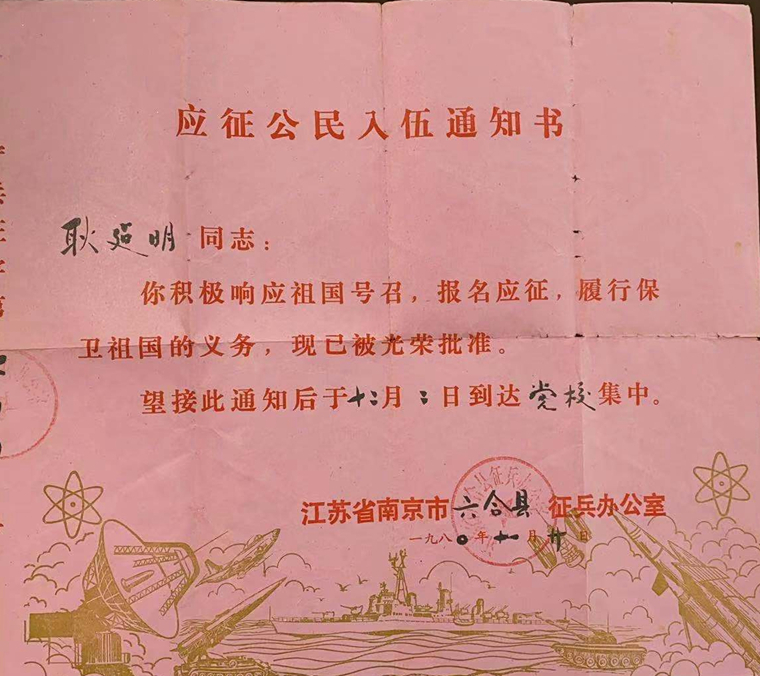 应征公民入伍通知书
耿延明同志：
你积极响应祖国号召，报名应征，履行保
卫祖国的义务，现已被光荣批准。
望接此通知后于十二月二日到达党校集中。
江苏省南京市六合县征兵办公室
一九八〇年十一月廿日